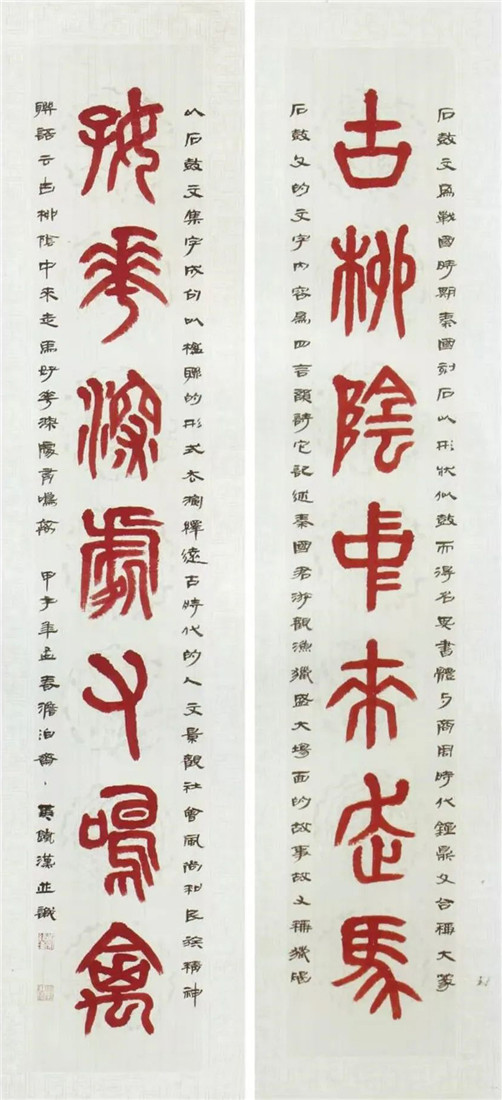 石鼓文為戰國時期秦國刻石以形狀似鼓而得名其書體与商周時代鐘鼎文合稱大篆
古柳陰中來走馬
石鼓文的文字內容為四言韻詩它記述秦國君游觀漁獵盛大場面的故事故又稱獵碣
以石鼓文集字成句以楹聯的形式去演繹遠古時代的人文景觀社會風尚和民族精神
好華深處有鳴禽
聯語云古柳陰中來走馬好華深處有鳴禽 甲午年孟春澹泊齋 漢並識